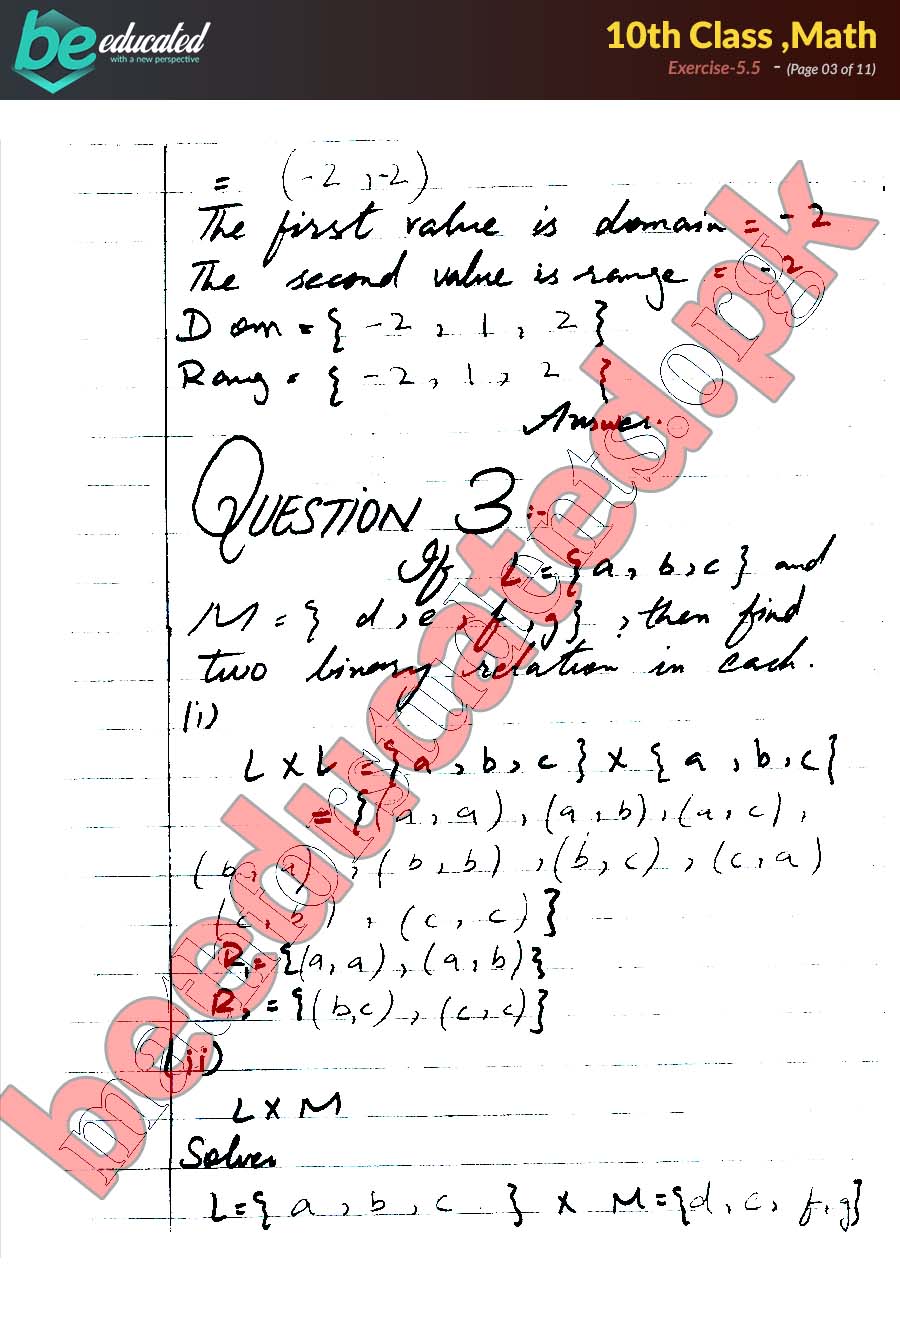 be educated
with a new perspective
10th Class ,Math
Exercise-5.5 - (Page 03 of 11)
= (-2 , -2)
The first value is domain = -2
The second value is range = -2
Dom = { -2 , 1 , 2 }
Rang = { -2 , 1 , 2 }
Answer.
QUESTION 3 :-
If L = {a , b , c } and
M = { d , e , f , g} , then find
two binary relation in each.
(i)
L X L = {a , b , c } X { a , b , c}
= {(a , a) , (a , b) , (a , c) ,
(b , a) , (b , b) , (b , c) , (c , a)
(c , b) , (c , c) }
R₁ = {(a, a) , (a , b)}
R₂ = {(b,c) , (c , c)}
(ii)
L X M
Solves
L={ a , b , c } X M={d , c , f , g}
beeducated.pk